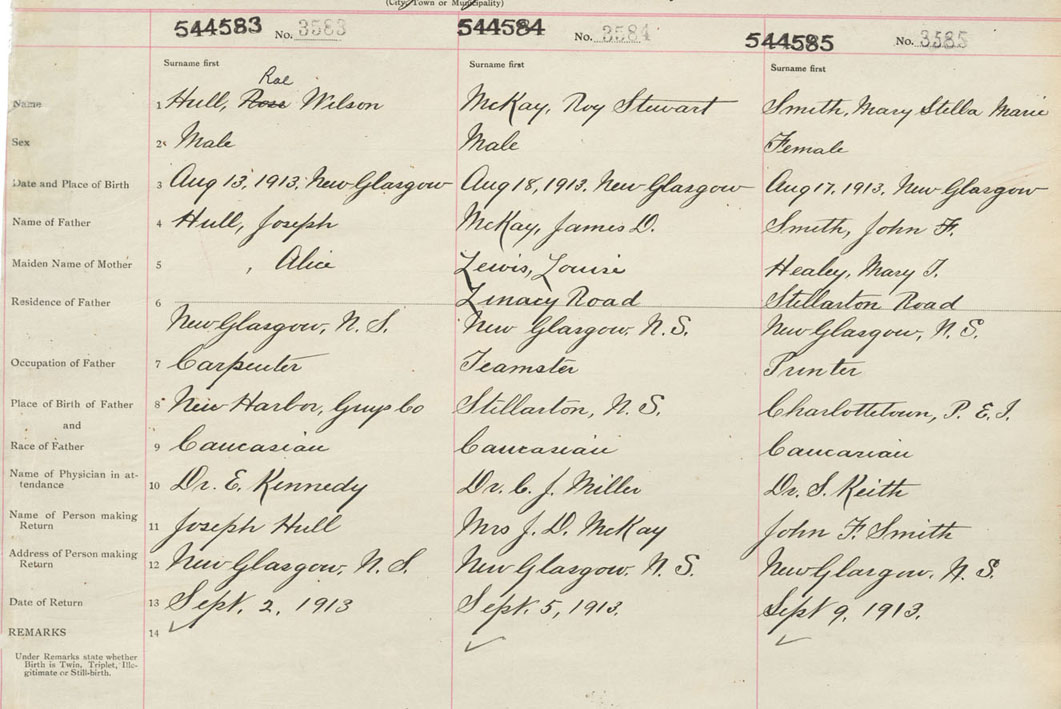 (City, Town or Municipality)
544583 No. 3583 544584 No. 3584 544585 No. 3585
Surname first Surname first Surname first
Rae
Name 1 Hull, Rose Wilson McKay, Roy Stewart Smith, Mary Stella Marie
Sex 2 Male Male Female
Date and Place of Birth 3 Aug 13, 1913, New Glasgow Aug 18, 1913, New Glasgow Aug 17, 1913, New Glasgow
Name of Father 4 Hull, Joseph McKay, James D. Smith, John F.
Maiden Name of Mother 5 , Alice Lewis, Louise Healey, Mary J.
Residence of Father 6 Linacy Road Stellarton Road
New Glasgow, N.S. New Glasgow, N.S. New Glasgow, N.S.
Occupation of Father 7 Carpenter Teamster Printer
Place of Birth of Father 8 New Harbor, Guys Co Stellarton, N.S. Charlottetown, P.E.I.
and
Race of Father 9 Caucasian Caucasian Caucasian
Name of Physician in at-
tendance 10 Dr. E. Kennedy Dr. C. J. Miller Dr. S. Keith
Name of Person making
Return 11 Joseph Hull Mrs J. D. McKay John F. Smith
Address of Person making
Return 12 New Glasgow, N.S. New Glasgow, N.S. New Glasgow, N.S.
Date of Return 13 Sept. 2, 1913 Sept. 5, 1913. Sept 9, 1913.
REMARKS 14
Under Remarks state whether
Birth is Twin, Triplet, Ille-
gitimate or Still-birth.